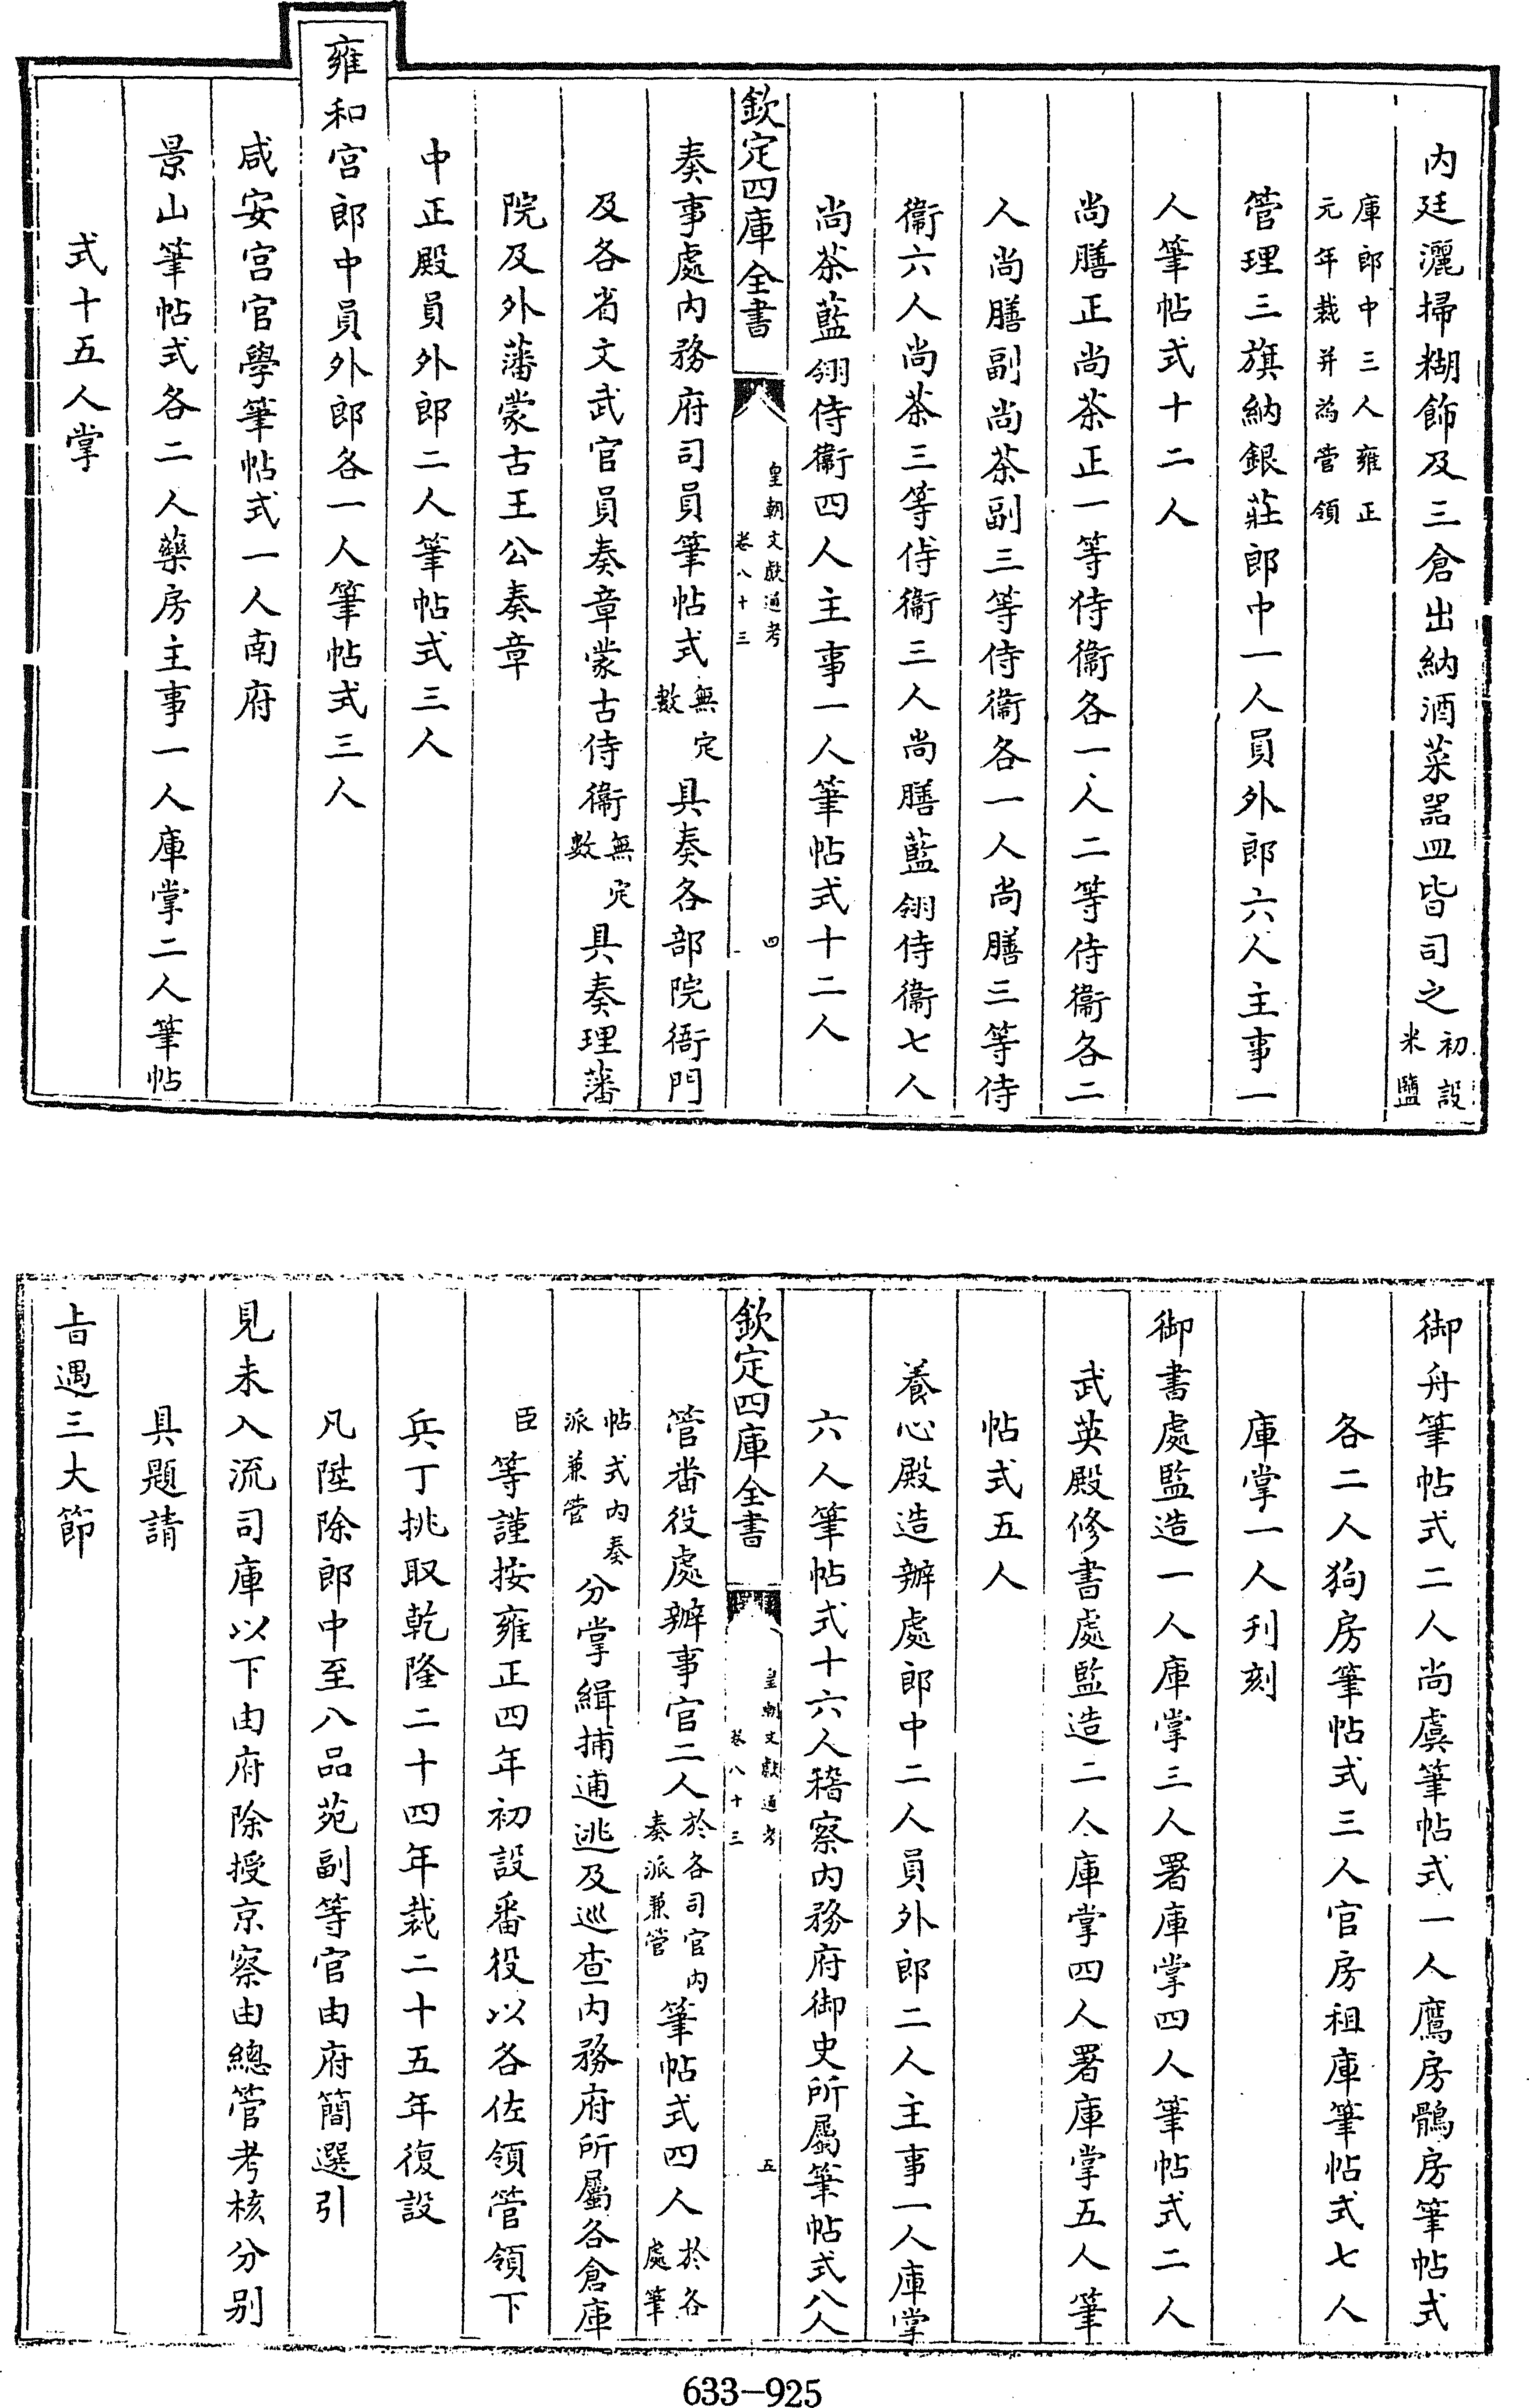 内廷灑掃糊飾及三倉出納酒菜器皿皆司之初設米鹽
庫郎中三人雍正元年裁并為管領
管理三旗納銀莊郎中一人員外郎六人主事一
人筆帖式十二人
尚膳正尚茶正一等侍衞各一人二等侍衞各二
人尚膳副尚茶副三等侍衞各一人尚膳三等侍
衞六人尚茶三等侍衞三人尚膳藍翎侍衞七人
尚茶藍翎侍衞四人主事一人筆帖式十二人
欽定四庫全書
皇朝文獻通考
卷八十三
四
奏事處内務府司員筆帖式無定數具奏各部院衙門
及各省文武官員奏章蒙古侍衞無定數具奏理藩
院及外藩蒙古王公奏章
中正殿員外郎二人筆帖式三人
雍和宫郎中員外郎各一人筆帖式三人
咸安宫官學筆帖式一人南府
景山筆帖式各二人藥房主事一人庫掌二人筆帖
式十五人掌
御舟筆帖式二人尚虞筆帖式一人鷹房鶻房筆帖式
各二人狗房筆帖式三人官房租庫筆帖式七人
庫掌一人刋刻
御書處監造一人庫掌三人署庫掌四人筆帖式二人
武英殿修書處監造二人庫掌四人署庫掌五人筆
帖式五人
養心殿造辦處郎中二人員外郎二人主事一人庫掌
六人筆帖式十六人稽察内務府御史所屬筆帖式八人
欽定四庫全書
皇朝文獻通考
卷八十三
五
管番役處辦事官二人於各司官内奏派兼管筆帖式四人於各處筆
帖式内奏派兼管分掌緝捕逋逃及巡查内務府所屬各倉庫
臣等謹按雍正四年初設番役以各佐領管領下
兵丁挑取乾隆二十四年裁二十五年復設
凡陞除郎中至八品苑副等官由府簡選引
見未入流司庫以下由府除授京察由總管考核分别
具題請
旨遇三大節
633-925